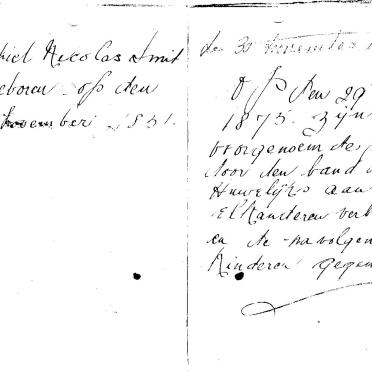 hiel Nicolas Smit
eboren op den
November 1851.
den 30 November
Op den 29
1875. zijn
voorgenoemde
door den band
Huwelijks aan
Elkanderen verb
en de navolgen
Kinderen gegen